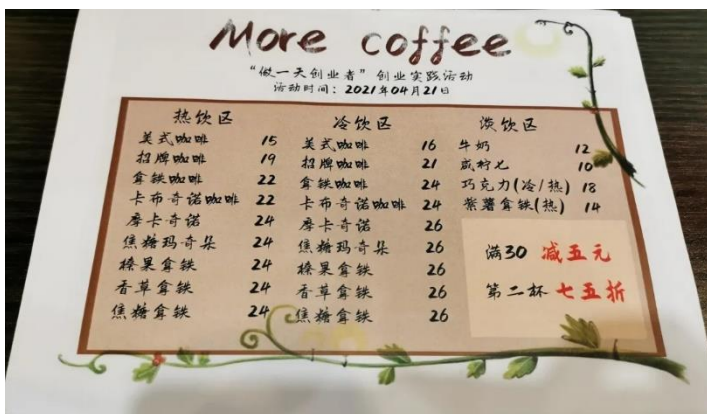 More coffee
“做一天创业者”创业实践活动
活动时间：2021年04月21日
热饮区
美式咖啡 15
招牌咖啡 19
拿铁咖啡 22
卡布奇诺咖啡 22
摩卡奇诺 24
焦糖玛奇朵 24
榛果拿铁 24
香草拿铁 24
焦糖拿铁 24
冷饮区
美式咖啡 16
招牌咖啡 21
拿铁咖啡 24
卡布奇诺咖啡 24
摩卡奇诺 26
焦糖玛奇朵 26
榛果拿铁 26
香草拿铁 26
焦糖拿铁 26
淡饮区
牛奶 12
咸柠七 10
巧克力(冷/热) 18
紫薯拿铁(热) 14
满30 减五元
第二杯 七五折